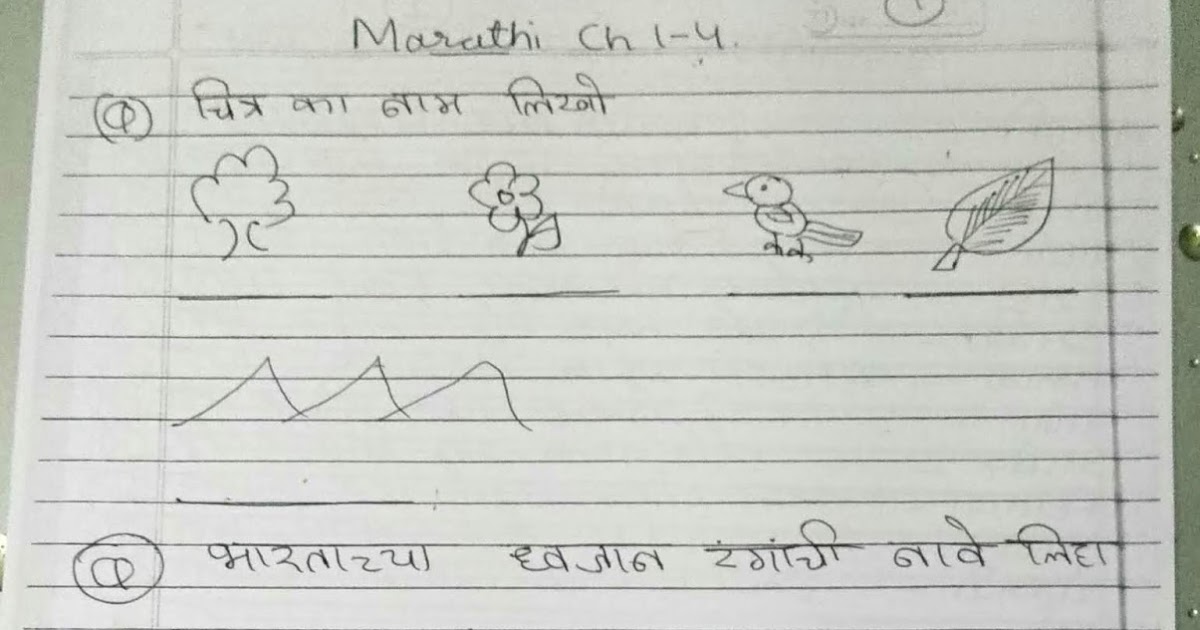 Marathi Ch 1-4.
Q चित्र का नाम लिखो
Q भारताच्या ध्वजान रंगांची नावे लिहा